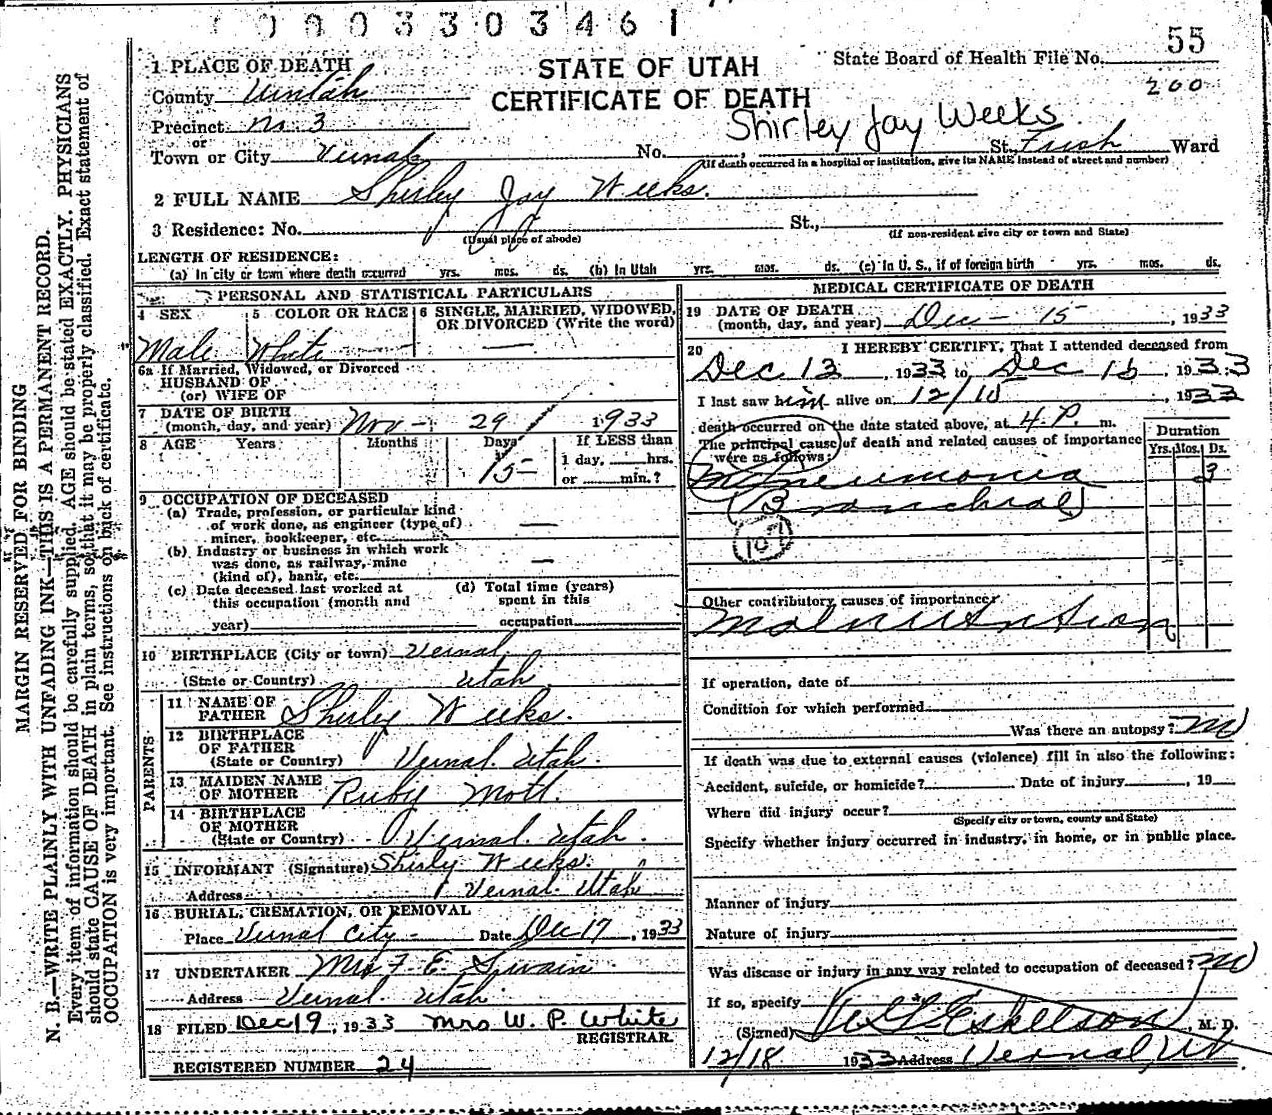 0003303461
55
1 PLACE OF DEATH
STATE OF UTAH
State Board of Health File No.
County Uintah
CERTIFICATE OF DEATH
200
Precinct No. 3
Shirley Jay Weeks
or
Town or City Vernal No. St. Ward
(If death occurred in a hospital or institution, give its NAME instead of street and number)
2 FULL NAME Shirley Jay Weeks.
3 Residence: No. St.,
(Usual place of abode) (If non-resident give city or town and State)
LENGTH OF RESIDENCE:
(a) In city or town where death occurred yrs. mos. ds. (b) In Utah yrs. mos. ds. (c) In U. S., if of foreign birth yrs. mos. ds.
PERSONAL AND STATISTICAL PARTICULARS
4 SEX 5 COLOR OR RACE 6 SINGLE, MARRIED, WIDOWED, OR DIVORCED (Write the word)
Male White —
6a If Married, Widowed, or Divorced
HUSBAND OF
(or) WIFE OF
7 DATE OF BIRTH
(month, day, and year) Nov - 29 1933
8 AGE Years Months Days If LESS than
15 1 day, hrs.
or min.?
9 OCCUPATION OF DECEASED
(a) Trade, profession, or particular kind
of work done, as engineer (type of)
miner, bookkeeper, etc. —
(b) Industry or business in which work
was done, as railway, mine
(kind of), bank, etc. —
(c) Date deceased last worked at (d) Total time (years)
this occupation (month and spent in this
year) occupation
10 BIRTHPLACE (City or town) Vernal
(State or Country) Utah
PARENTS
11 NAME OF
FATHER Shirley Weeks.
12 BIRTHPLACE
OF FATHER
(State or Country) Vernal. Utah.
13 MAIDEN NAME
OF MOTHER Ruby Mott.
14 BIRTHPLACE
OF MOTHER
(State or Country) Vernal. Utah.
15 INFORMANT (Signature) Shirly Weeks.
Address Vernal. Utah
16 BURIAL, CREMATION, OR REMOVAL
Place Vernal City - Date Dec 17, 1933
17 UNDERTAKER Mrs F. E. Swain
Address Vernal. Utah.
18 FILED Dec 19, 1933 Mrs W. P. White
REGISTRAR.
REGISTERED NUMBER 24
MEDICAL CERTIFICATE OF DEATH
19 DATE OF DEATH
(month, day, and year) Dec - 15, 1933
20 I HEREBY CERTIFY, That I attended deceased from
Dec 13, 1933 to Dec 15, 1933
I last saw him alive on 12/15, 1933
death occurred on the date stated above, at 4 P. m.
The principal cause of death and related causes of importance
were as follows:
Duration
Yrs. Mos. Ds.
Pneumonia 3
(Bronchial)
107
Other contributory causes of importance:
Malnutrition
If operation, date of
Condition for which performed
Was there an autopsy? no
If death was due to external causes (violence) fill in also the following:
Accident, suicide, or homicide? Date of injury, 19
Where did injury occur?
(Specify city or town, county and State)
Specify whether injury occurred in industry, in home, or in public place.
Manner of injury
Nature of injury
Was disease or injury in any way related to occupation of deceased? no
If so, specify
(Signed) Eskelson, M. D.
12/18 1933 Address Vernal, Ut
MARGIN RESERVED FOR BINDING
N. B.—WRITE PLAINLY WITH UNFADING INK—THIS IS A PERMANENT RECORD.
Every item of information should be carefully supplied. AGE should be stated EXACTLY. PHYSICIANS
should state CAUSE OF DEATH in plain terms, so that it may be properly classified. Exact statement of
OCCUPATION is very important. See instructions on back of certificate.